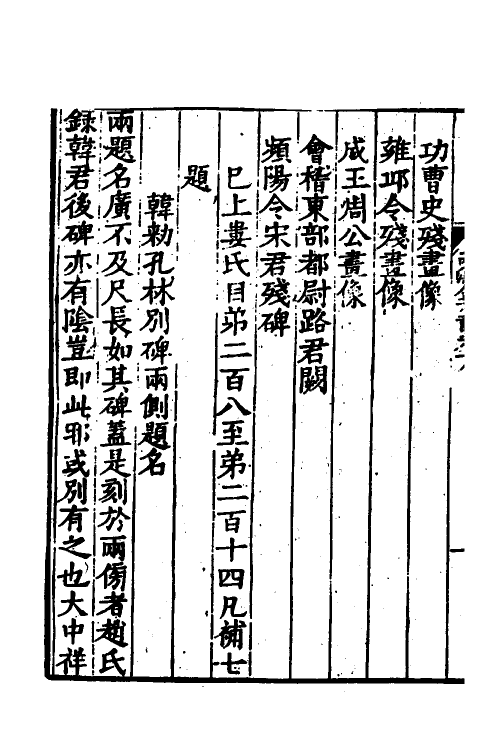 功曹史殘畫像
雍邱令殘畫像
成王周公畫像
會稽東部都尉路君闕
頻陽令宋君殘碑
巳上婁氏目弟二百八至弟二百十四凡補七
題
韓勑孔林別碑兩側題名
兩題名廣不及尺長如其碑蓋是刻於兩傍者趙氏
錄韓君後碑亦有陰豈即此邪或別有之也大中祥